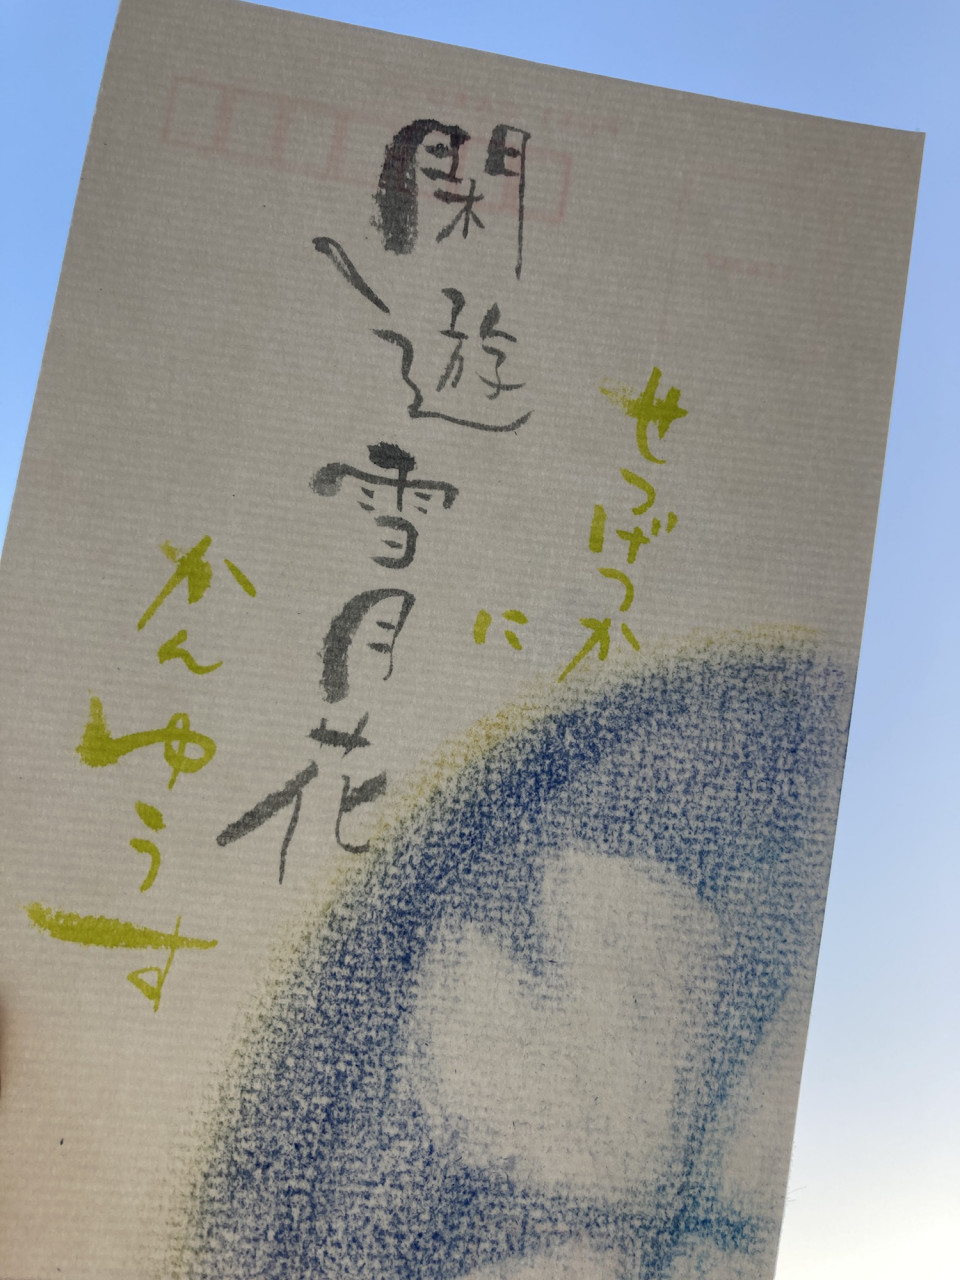 せつげつか
に
閑遊雪月花
かんゆうす